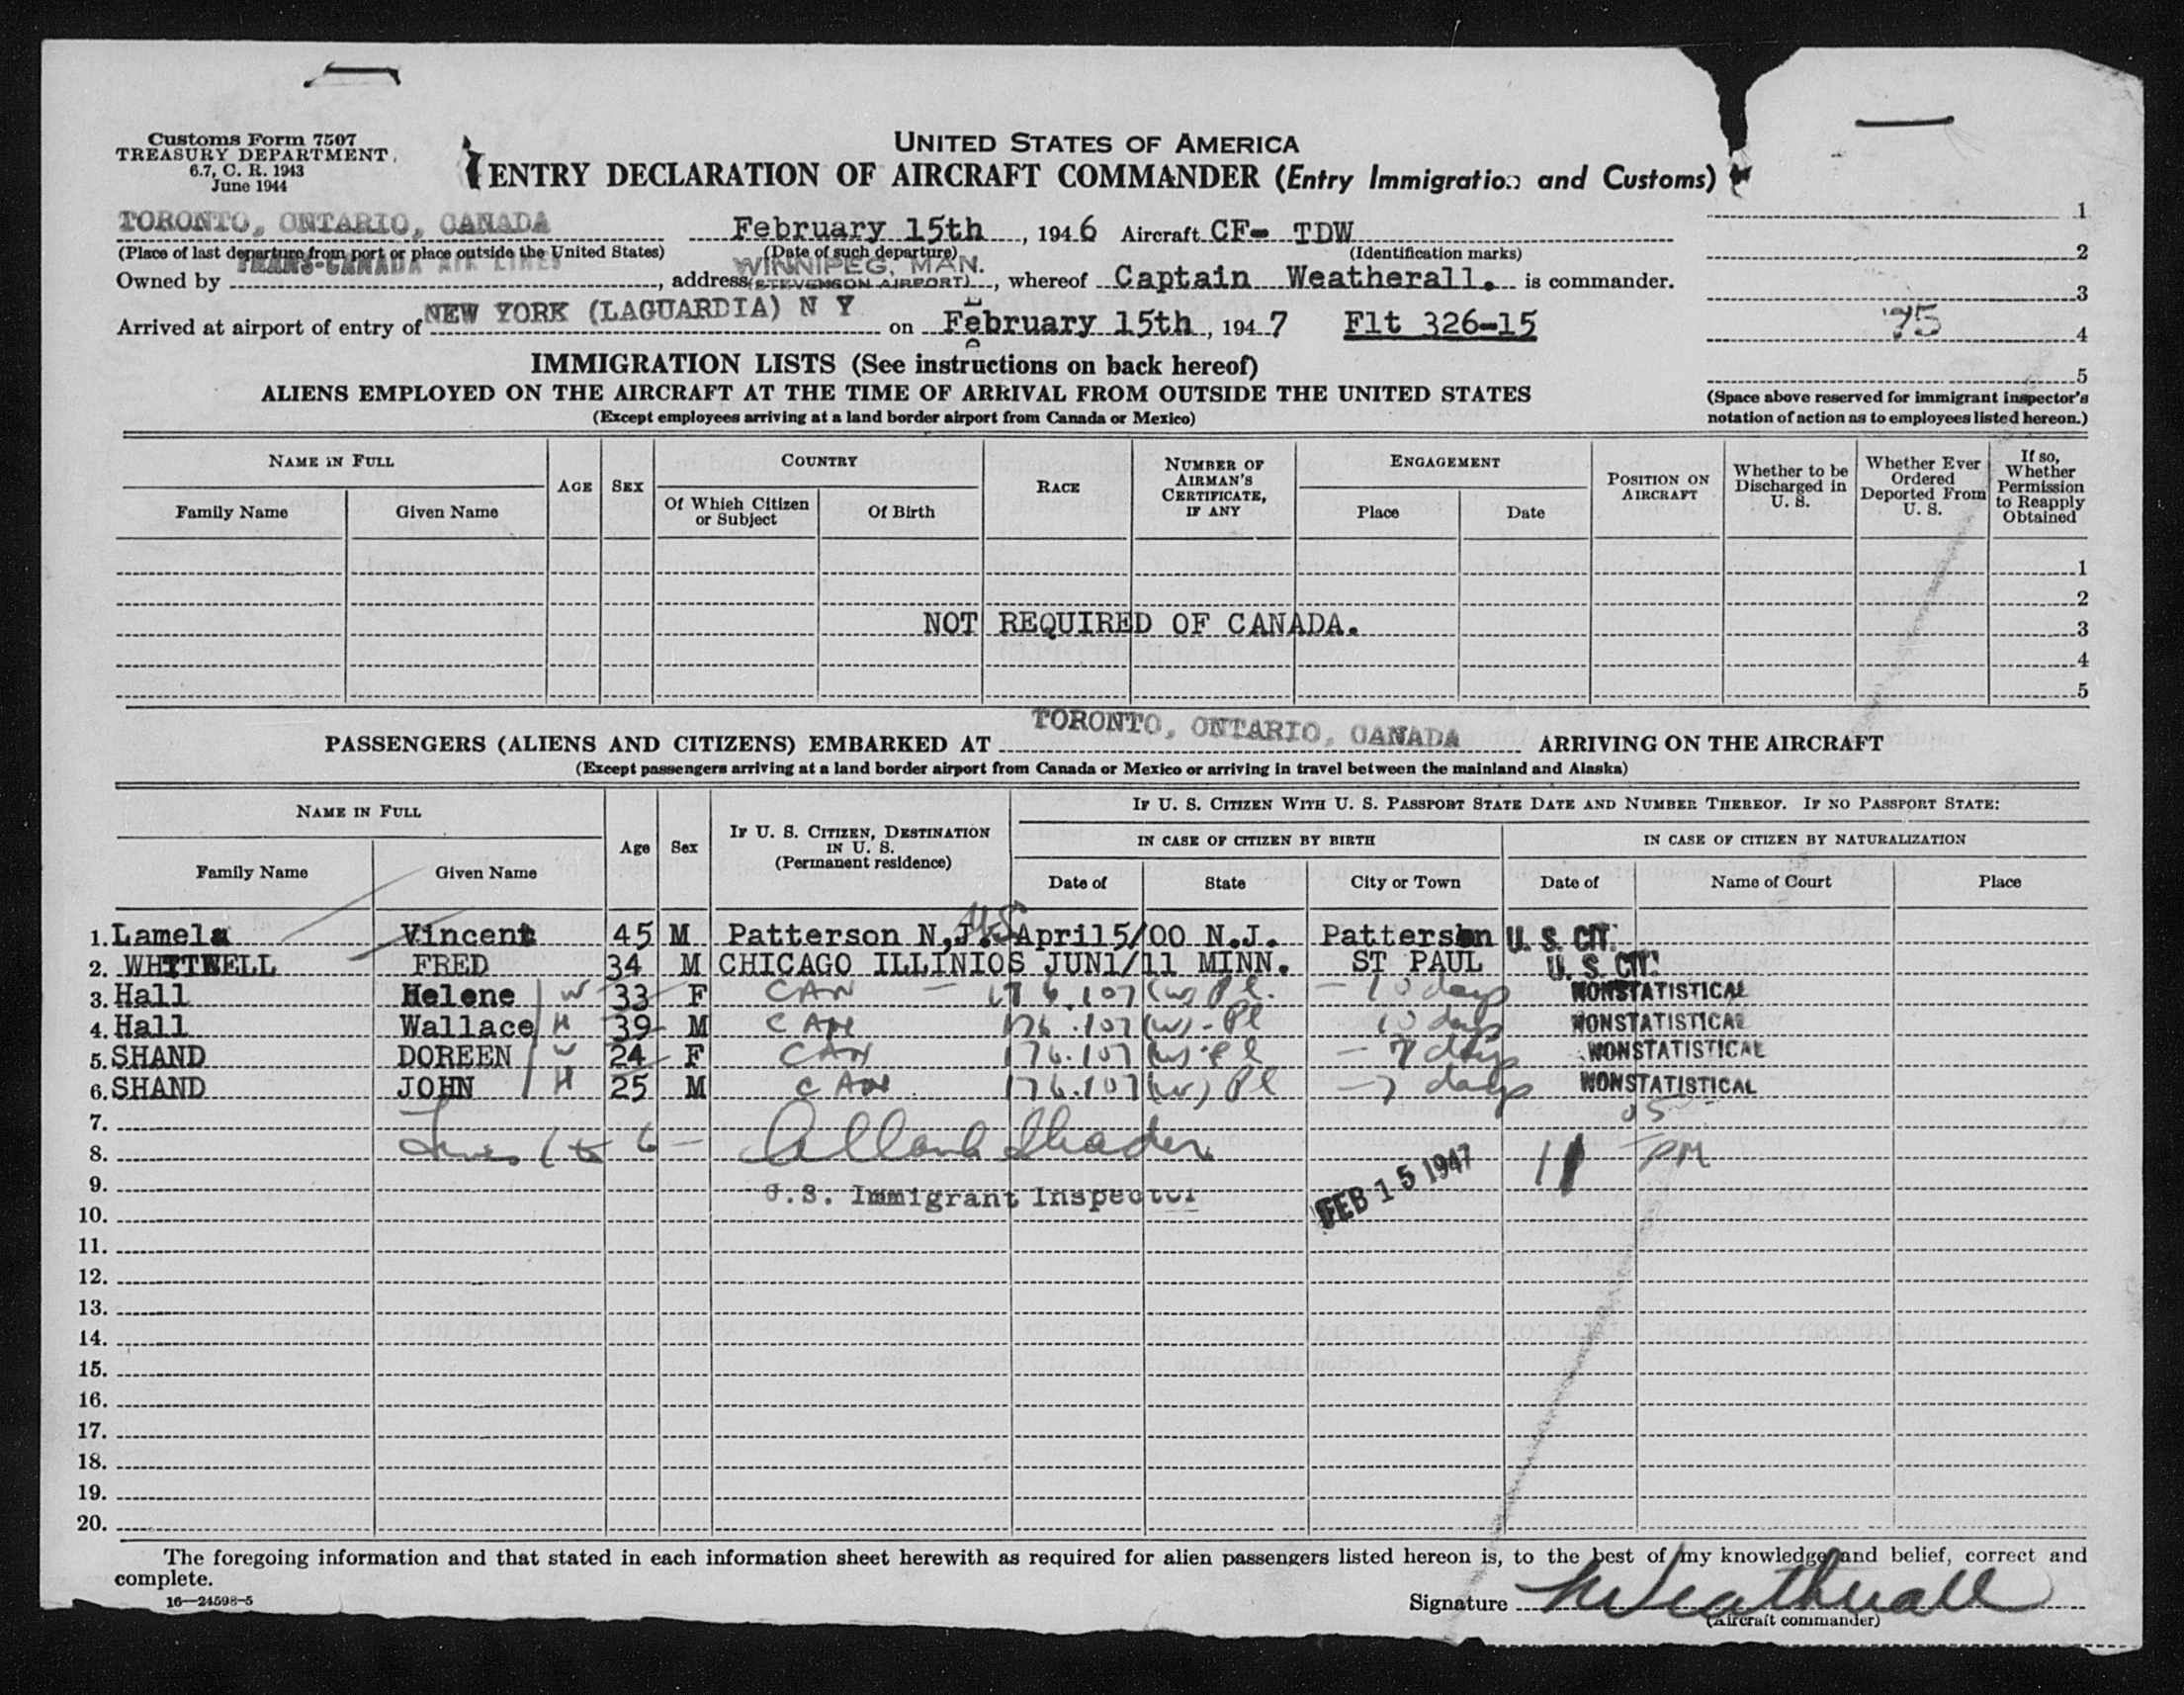 Customs Form 7507
TREASURY DEPARTMENT
6.7, C. R. 1943
June 1944
UNITED STATES OF AMERICA
ENTRY DECLARATION OF AIRCRAFT COMMANDER (Entry Immigration and Customs)
TORONTO, ONTARIO, CANADA February 15th, 1946 Aircraft CF- TDW
(Place of last departure from port or place outside the United States) (Date of such departure) (Identification marks)
Owned by TRANS-CANADA AIR LINES, address WINNIPEG, MAN. (STEVENSON AIRPORT), whereof Captain Weatherall. is commander.
Arrived at airport of entry of NEW YORK (LAGUARDIA) N Y on February 15th, 1947 Flt 326-15
1
2
3
75 4
5
(Space above reserved for immigrant inspector's notation of action as to employees listed hereon.)
IMMIGRATION LISTS (See instructions on back hereof)
ALIENS EMPLOYED ON THE AIRCRAFT AT THE TIME OF ARRIVAL FROM OUTSIDE THE UNITED STATES
(Except employees arriving at a land border airport from Canada or Mexico)
NAME IN FULL AGE SEX COUNTRY RACE NUMBER OF AIRMAN'S CERTIFICATE, IF ANY ENGAGEMENT POSITION ON AIRCRAFT Whether to be Discharged in U. S. Whether Ever Ordered Deported From U. S. If so, Whether Permission to Reapply Obtained
Family Name Given Name Of Which Citizen or Subject Of Birth Place Date
1
2
NOT REQUIRED OF CANADA. 3
4
5
PASSENGERS (ALIENS AND CITIZENS) EMBARKED AT TORONTO, ONTARIO, CANADA ARRIVING ON THE AIRCRAFT
(Except passengers arriving at a land border airport from Canada or Mexico or arriving in travel between the mainland and Alaska)
NAME IN FULL Age Sex IF U. S. CITIZEN, DESTINATION IN U. S. (Permanent residence) IF U. S. CITIZEN WITH U. S. PASSPORT STATE DATE AND NUMBER THEREOF. IF NO PASSPORT STATE:
IN CASE OF CITIZEN BY BIRTH IN CASE OF CITIZEN BY NATURALIZATION
Family Name Given Name Date of State City or Town Date of Name of Court Place
1. Lamela Vincent 45 M Patterson N.J. US April5/00 N.J. Patterson U. S. CIT.
2. WHITWELL FRED 34 M CHICAGO ILLINIOS JUN1/11 MINN. ST PAUL U. S. CIT.
3. Hall Helene W 33 F CAN - 176.107 (W) Pl. - 10 days NONSTATISTICAL
4. Hall Wallace H 39 M CAN 176.107 (W) - Pl 10 days NONSTATISTICAL
5. SHAND DOREEN W 24 F CAN 176.107 (W) Pl - 7 days NONSTATISTICAL
6. SHAND JOHN H 25 M CAN 176.107 (W) Pl - 7 days NONSTATISTICAL
7.
8. Lines 1 to 6 - 11 05 PM
9. U.S. Immigrant Inspector FEB 15 1947
10.
11.
12.
13.
14.
15.
16.
17.
18.
19.
20.
The foregoing information and that stated in each information sheet herewith as required for alien passengers listed hereon is, to the best of my knowledge and belief, correct and
complete.
16—24598-5
Signature Weatherall
(Aircraft commander)